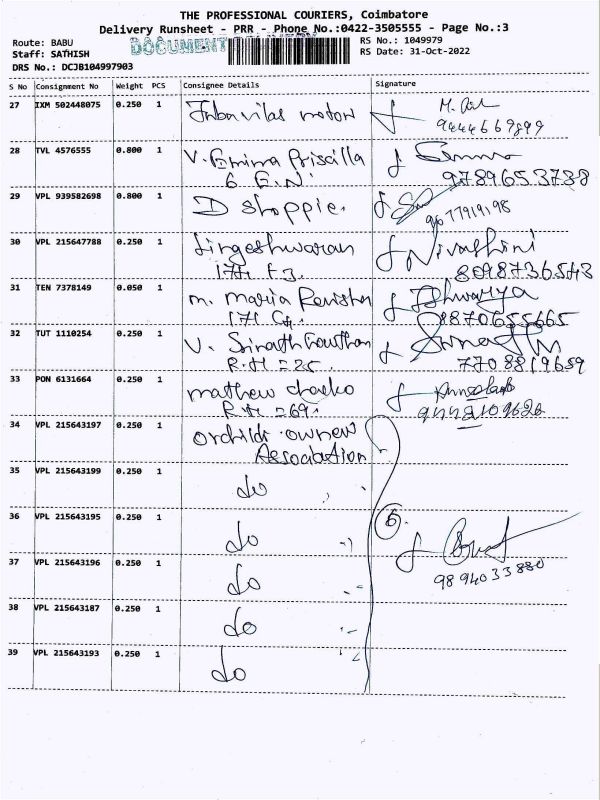 THE PROFESSIONAL COURIERS, Coimbatore
Delivery Runsheet - PRR - Phone No.:0422-3505555 - Page No.:3
Route: BABU
DOCUMENT DELIVERY
RS No.: 1049979
Staff: SATHISH
RS Date: 31-Oct-2022
DRS No.: DCJB104997903
S No Consignment No Weight PCS Consignee Details Signature
27 IXM 502448075 0.250 1 motor
9444669899
28 TVL 4576555 0.800 1 V. Emima Priscilla
6 E.N.
9789653738
29 VPL 939582698 0.800 1 D shoppie.
9677919198
30 VPL 215647788 0.250 1 Lingeshwaran Nivashini
171 F3. 8098736543
31 TEN 7378149 0.050 1 m. maria Aishwarya
171 8870655665
32 TUT 1110254 0.250 1 V.
R.H = 25. 7708819659
33 PON 6131664 0.250 1 mathew chacko
R.H = 69. 9442109626
34 VPL 215643197 0.250 1 orchids owner
Association
35 VPL 215643199 0.250 1 do
36 VPL 215643195 0.250 1 do 6
37 VPL 215643196 0.250 1 do 9894033880
38 VPL 215643187 0.250 1 do
39 VPL 215643193 0.250 1 do